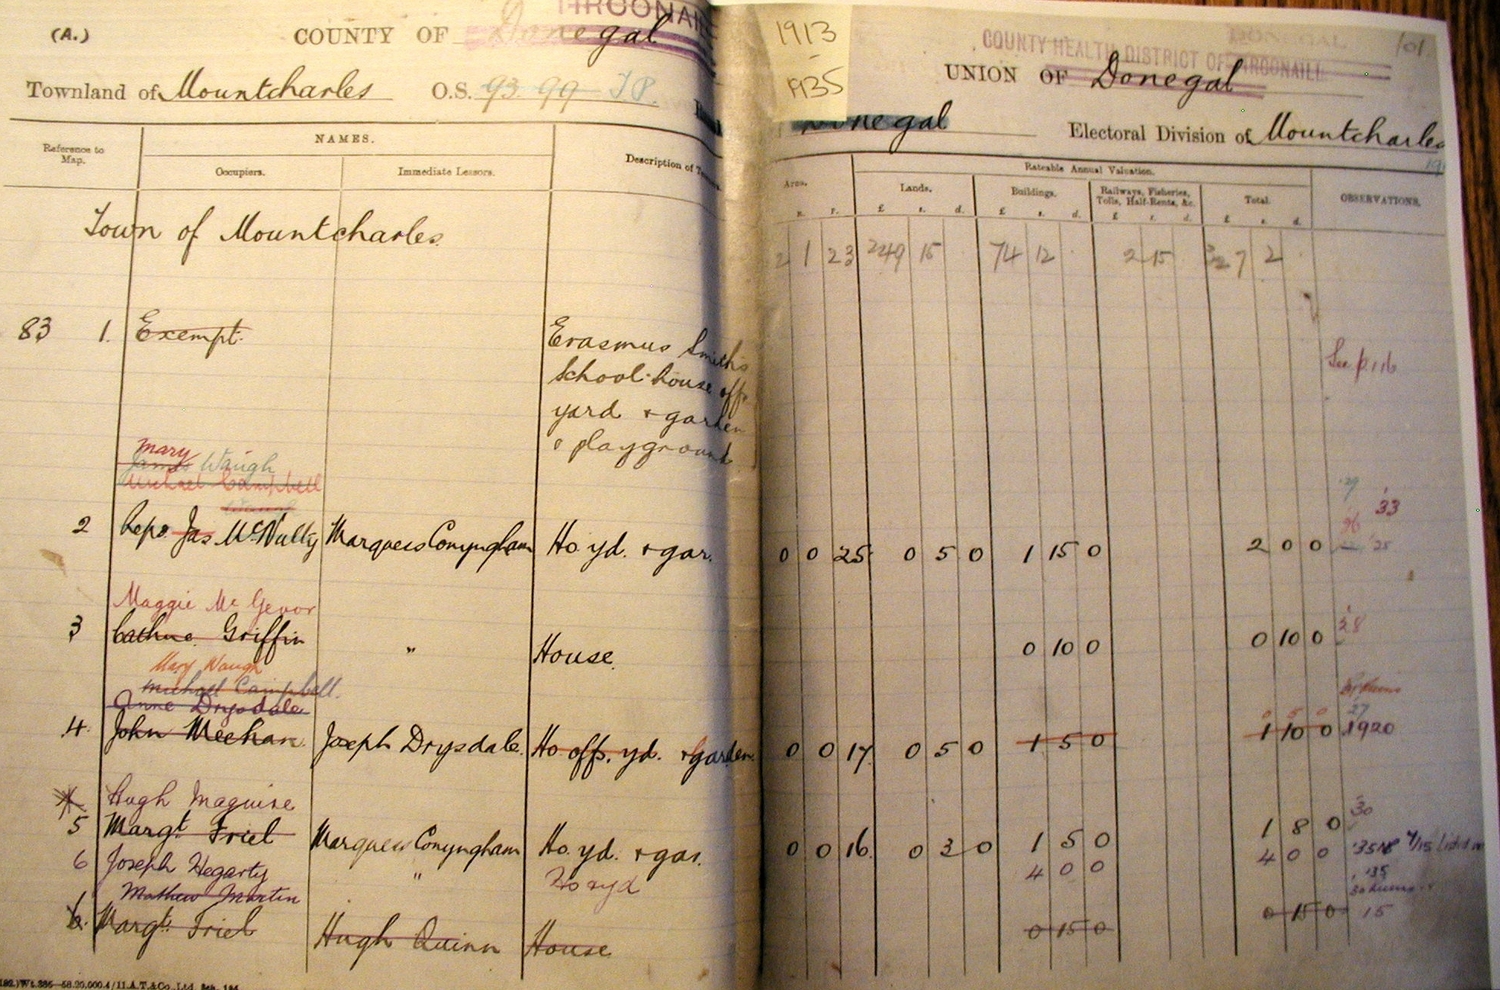 (A.)
COUNTY OF Donegal
Townland of Mountcharles O.S. 93. 99
NAMES.
Reference to Map.
Occupiers.
Immediate Lessors.
Description of
Town of Mountcharles
83 1. Exempt.
Erasmus Smith's
School-house off.
yard + garden
& playground
Mary
James Waugh
Michael Campbell
2 Reps. Jas McNulty Marquess Conyngham Ho. yd. + gar.
Maggie McGevor
3 Griffin " House
Mary Waugh
Michael Campbell
Anne Drysdale
4. John Meehan Joseph Drysdale. Ho. off. yd. + Garden
Hugh Maguire
5 Margt. Friel Marquess Conyngham Ho. yd. + gar.
6 Joseph Hegarty " Ho + yd
Mathew Martin
6. Margt. Friel Hugh Quinn House
1913
-
1935
COUNTY HEALTH DISTRICT OF TIRCONAILL
DONEGAL
101.
UNION OF Donegal
Donegal Electoral Division of Mountcharles
Rateable Annual Valuation.
Area.
Lands.
Buildings.
Railways, Fisheries, Tolls, Half-Rents, &c.
Total.
OBSERVATIONS.
R. P. £ s. d. £ s. d. £ s. d. £ s. d.
2 1 23 249 15 74 12 2 15 327 2
See p. 116
'29
'33
26
'25
0 0 25 0 5 0 1 15 0 2 0 0
'28
0 10 0 0 10 0
27
0 5 0
0 0 17 0 5 0 1 5 0 1 10 0 1920
'30
0 0 16 0 3 0 1 5 0 1 8 0
4 0 0 4 0 0
'35
0 15 0 0 15 0 15